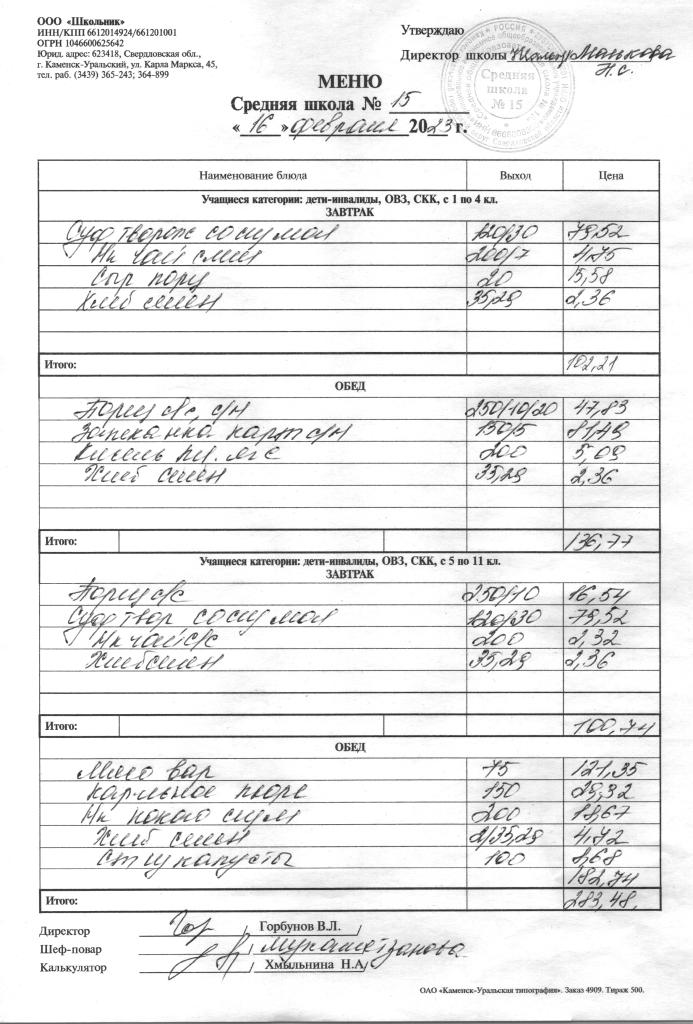 ООО «Школьник»
ИНН/КПП 6612014924/661201001
ОГРН 1046600625642
Юрид. адрес: 623418, Свердловская обл.,
г. Каменск-Уральский, ул. Карла Маркса, 45,
тел. раб. (3439) 365-243; 364-899
Утверждаю
Директор школы Манькова
Н.С.
РОССИЯ
Средняя
школа
№ 15
МЕНЮ
Средняя школа № 15
«16» февраля 2023 г.
Наименование блюда Выход Цена
Учащиеся категории: дети-инвалиды, ОВЗ, СКК, с 1 по 4 кл.
ЗАВТРАК
Суф творож со сгу мол 120/30 79,52
Нп чай слив 200/7 4,75
Сыр порц 20 15,58
Хлеб семен 35,29 2,36
Итого: 102,21
ОБЕД
Борщ с/с, с/м 250/10/20 47,83
Запеканка карт с/м 150/5 81,49
Кисель 200 5,09
Хлеб семен 35,29 2,36
Итого: 136,77
Учащиеся категории: дети-инвалиды, ОВЗ, СКК, с 5 по 11 кл.
ЗАВТРАК
Борщ с/с 250/10 16,54
Суф твор со сгу мол 120/30 79,52
Нп чай с/с 200 2,32
Хлеб семен 35,29 2,36
Итого: 100,74
ОБЕД
Мясо вар 75 121,35
Кар-льное пюре 150 29,32
Нп какао сгущ 200 18,67
Хлеб семен 2/35,29 4,72
капусты 100 8,68
182,74
Итого: 283,48
Директор / Горбунов В.Л.
Шеф-повар / /
Калькулятор / Хмыльнина Н.А/
ОАО «Каменск-Уральская типография». Заказ 4909. Тираж 500.